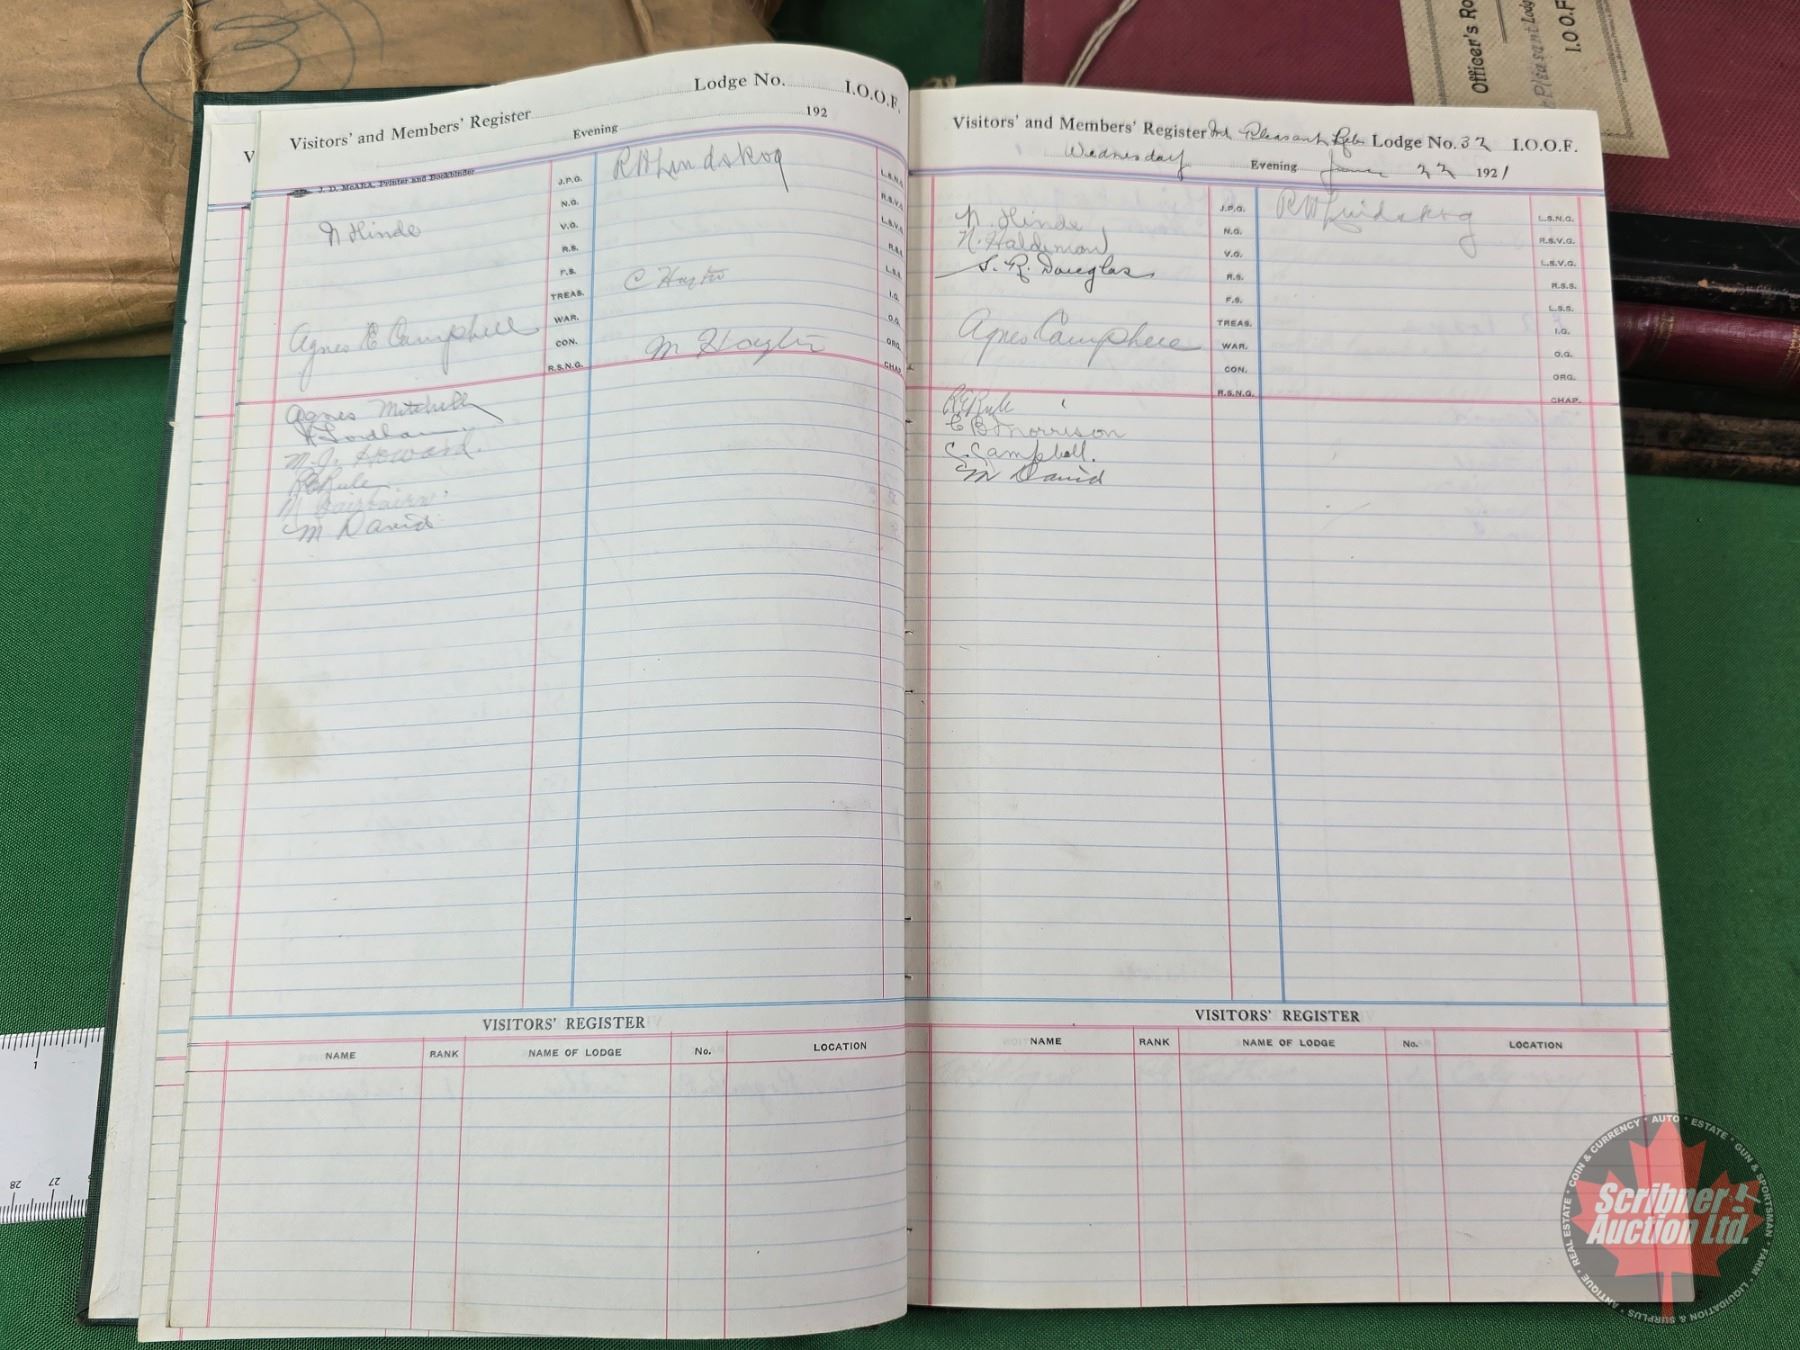 3
Officer's Ro
Pleasant Lodg
I.O.O.F
V
Visitors' and Members' Register Lodge No. I.O.O.F.
Evening 192
J. D. McARA, Printer and Bookbinder
J.P.G.
N.G.
V.G.
R.S.
F.S.
TREAS.
WAR.
CON.
R.S.N.G.
N Hinde
Agnes E Campbell
Agnes Mitchell
M. J. Howard.
R E Rule
N Fairbairn
M David
R W Lindskog
C
M
L.S.N.G.
R.S.V.G.
L.S.V.G.
R.S.S.
L.S.S.
I.G.
O.G.
ORG.
CHAP.
VISITORS' REGISTER
NAME RANK NAME OF LODGE No. LOCATION
Visitors' and Members' Register Mt Pleasant Reb Lodge No. 32 I.O.O.F.
Wednesday Evening June 22 1921
J.P.G.
N.G.
V.G.
R.S.
F.S.
TREAS.
WAR.
CON.
R.S.N.G.
N. Hinde
N. Haldeman
S. R. Douglas
Agnes Campbell
R E Rule
C B Morrison
C. Campbell.
M David
R W Lindskog
L.S.N.G.
R.S.V.G.
L.S.V.G.
R.S.S.
L.S.S.
I.G.
O.G.
ORG.
CHAP.
VISITORS' REGISTER
NAME RANK NAME OF LODGE No. LOCATION
1
28 27
Scribner
Auction Ltd.
AUTO • ESTATE • GUN & SPORTSMAN • FARM • LIQUIDATION & SURPLUS • ANTIQUE • REAL ESTATE • COIN & CURRENCY